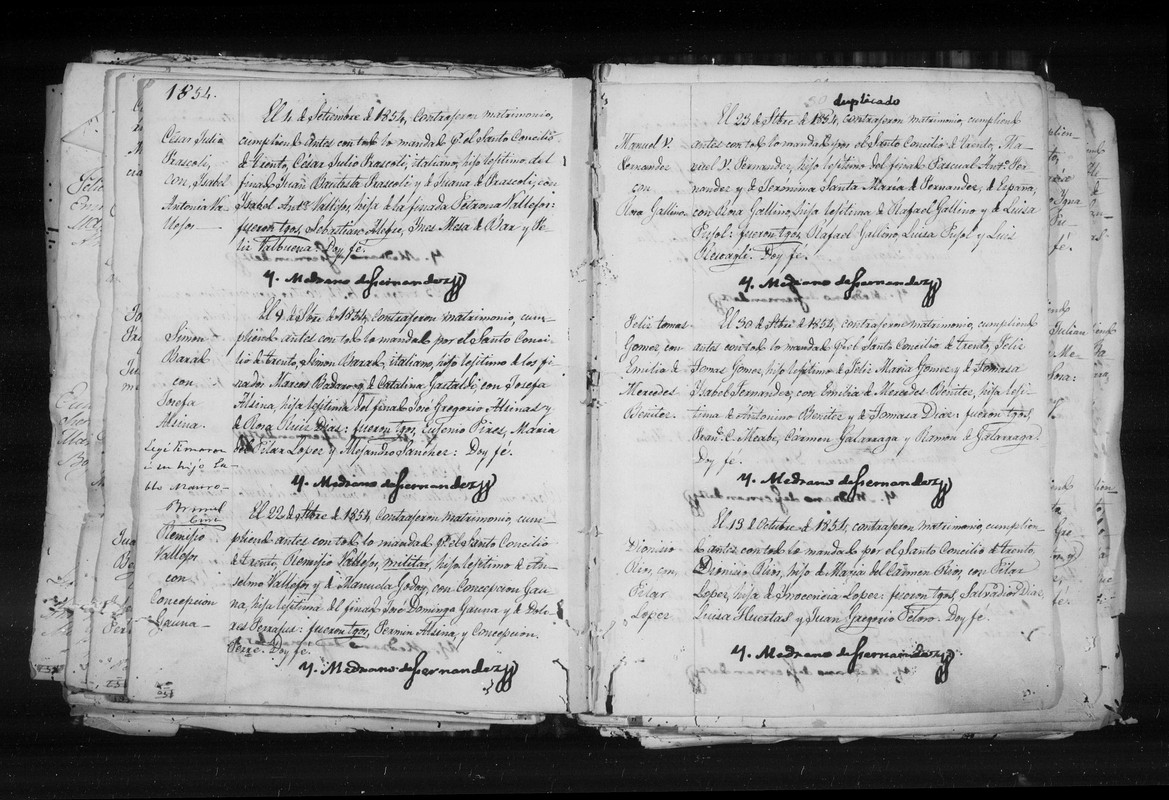 1854.
César Julio
Prascoli,
con Isabel
Antonia Va-
llejos
El 4 de Setiembre de 1854, contrajeron matrimonio,
cumpliendo antes con todo lo mandado p.r el Santo Concilio
de Trento, César Julio Prascoli, italiano, hijo lejitimo del
finado Juan Bautista Prascoli y de Juana de Prascoli; con
Isabel Ant.a Vallejos, hija de la finada Petrona Vallejos:
fueron tgos, Sebastian Alegre, Ines Mesa de Díaz y Fe-
liz Tribuena. Doy fé.
Y. Medrano de Fernandez
Simon
Barak
con
Josefa
Alsina.
El 9 de Stbre de 1854, contrajeron matrimonio, cum-
pliendo antes con todo lo mandado por el Santo Conci-
lio de Trento, Simon Barak, italiano, hijo lejitimo de los fi-
nados Marcos Badaro y de Catalina Gastaldi; con Josefa
Alsina, hija lejitima del finado José Gregorio Alsinas y
de Rosa Ruiz Díaz: fueron tgos, Eugenio Pires, Maria
del Pilar Lopez y Alejandro Sanchez: Doy fé.
Y. Medrano de Fernandez
Remijio
Vallejos,
con
Concepcion
Gauna
El 22 de Stbre de 1854, contrajeron matrimonio, cum-
pliendo antes con todo lo mandado p.r el Santo Concilio
de Trento, Remijio Vallejos, militar, hijo lejitimo de An-
selmo Vallejos y de Manuela Godoy, con Concepcion Gau-
na, hija lejitima del finado José Domingo Gauna y de Dolo-
res Ferrajus: fueron tgos, Fermin Alsina, y Concepcion
Perre. Doy fé.
Y. Medrano de Fernandez
duplicado
Manuel V.
Fernandez
con
Rosa Gallino
El 23 de Stbre de 1854, contrajeron matrimonio, cumpliendo
antes con todo lo mandado por el Santo Concilio de Trento, Ma-
nuel V. Fernandez, hijo lejitimo del finado Pascual Ant.o Fer-
nandez y de Jeronima Santa Maria de Fernandez, de España,
con Rosa Gallino, hija lejitima de Rafael Gallino y de Luisa
Pujol: fueron tgos, Rafael Gallino, Luisa Pujol y Luis
Resoagli. Doy fé.
Y. Medrano de Fernandez
Feliz tomas
Gomez, con
Emilia de
Mercedes
Benitez.
El 30 de Stbre de 1854, contrajeron matrimonio, cumpliendo
antes con todo lo mandado p.r el Santo Concilio de Trento, Feliz
Tomas Gomez, hijo lejitimo de Feliz Maria Gomez y de Tomasa
Isabel Fernandez, con Emilia de Mercedes Benitez, hija leji-
tima de Antonino Benitez y de Tomasa Díaz: fueron tgos,
Fran.co C. Meabe, Cármen Galarraga y Ramon de Galarraga.
Doy fé.
Y. Medrano de Fernandez
Dionicio
Rios, con
Pilar
Lopez
El 13 de Octubre de 1854, contrajeron matrimonio, cumplien-
do antes con todo lo mandado por el Santo Concilio de Trento,
Dionicio Rios, hijo de Maria del Cármen Rios, con Pilar
Lopez, hija de Inocencia Lopez: fueron tgos, Salvador Díaz,
Luisa Huertas y Juan Gregorio Peloro. Doy fé
Y. Medrano de Fernandez